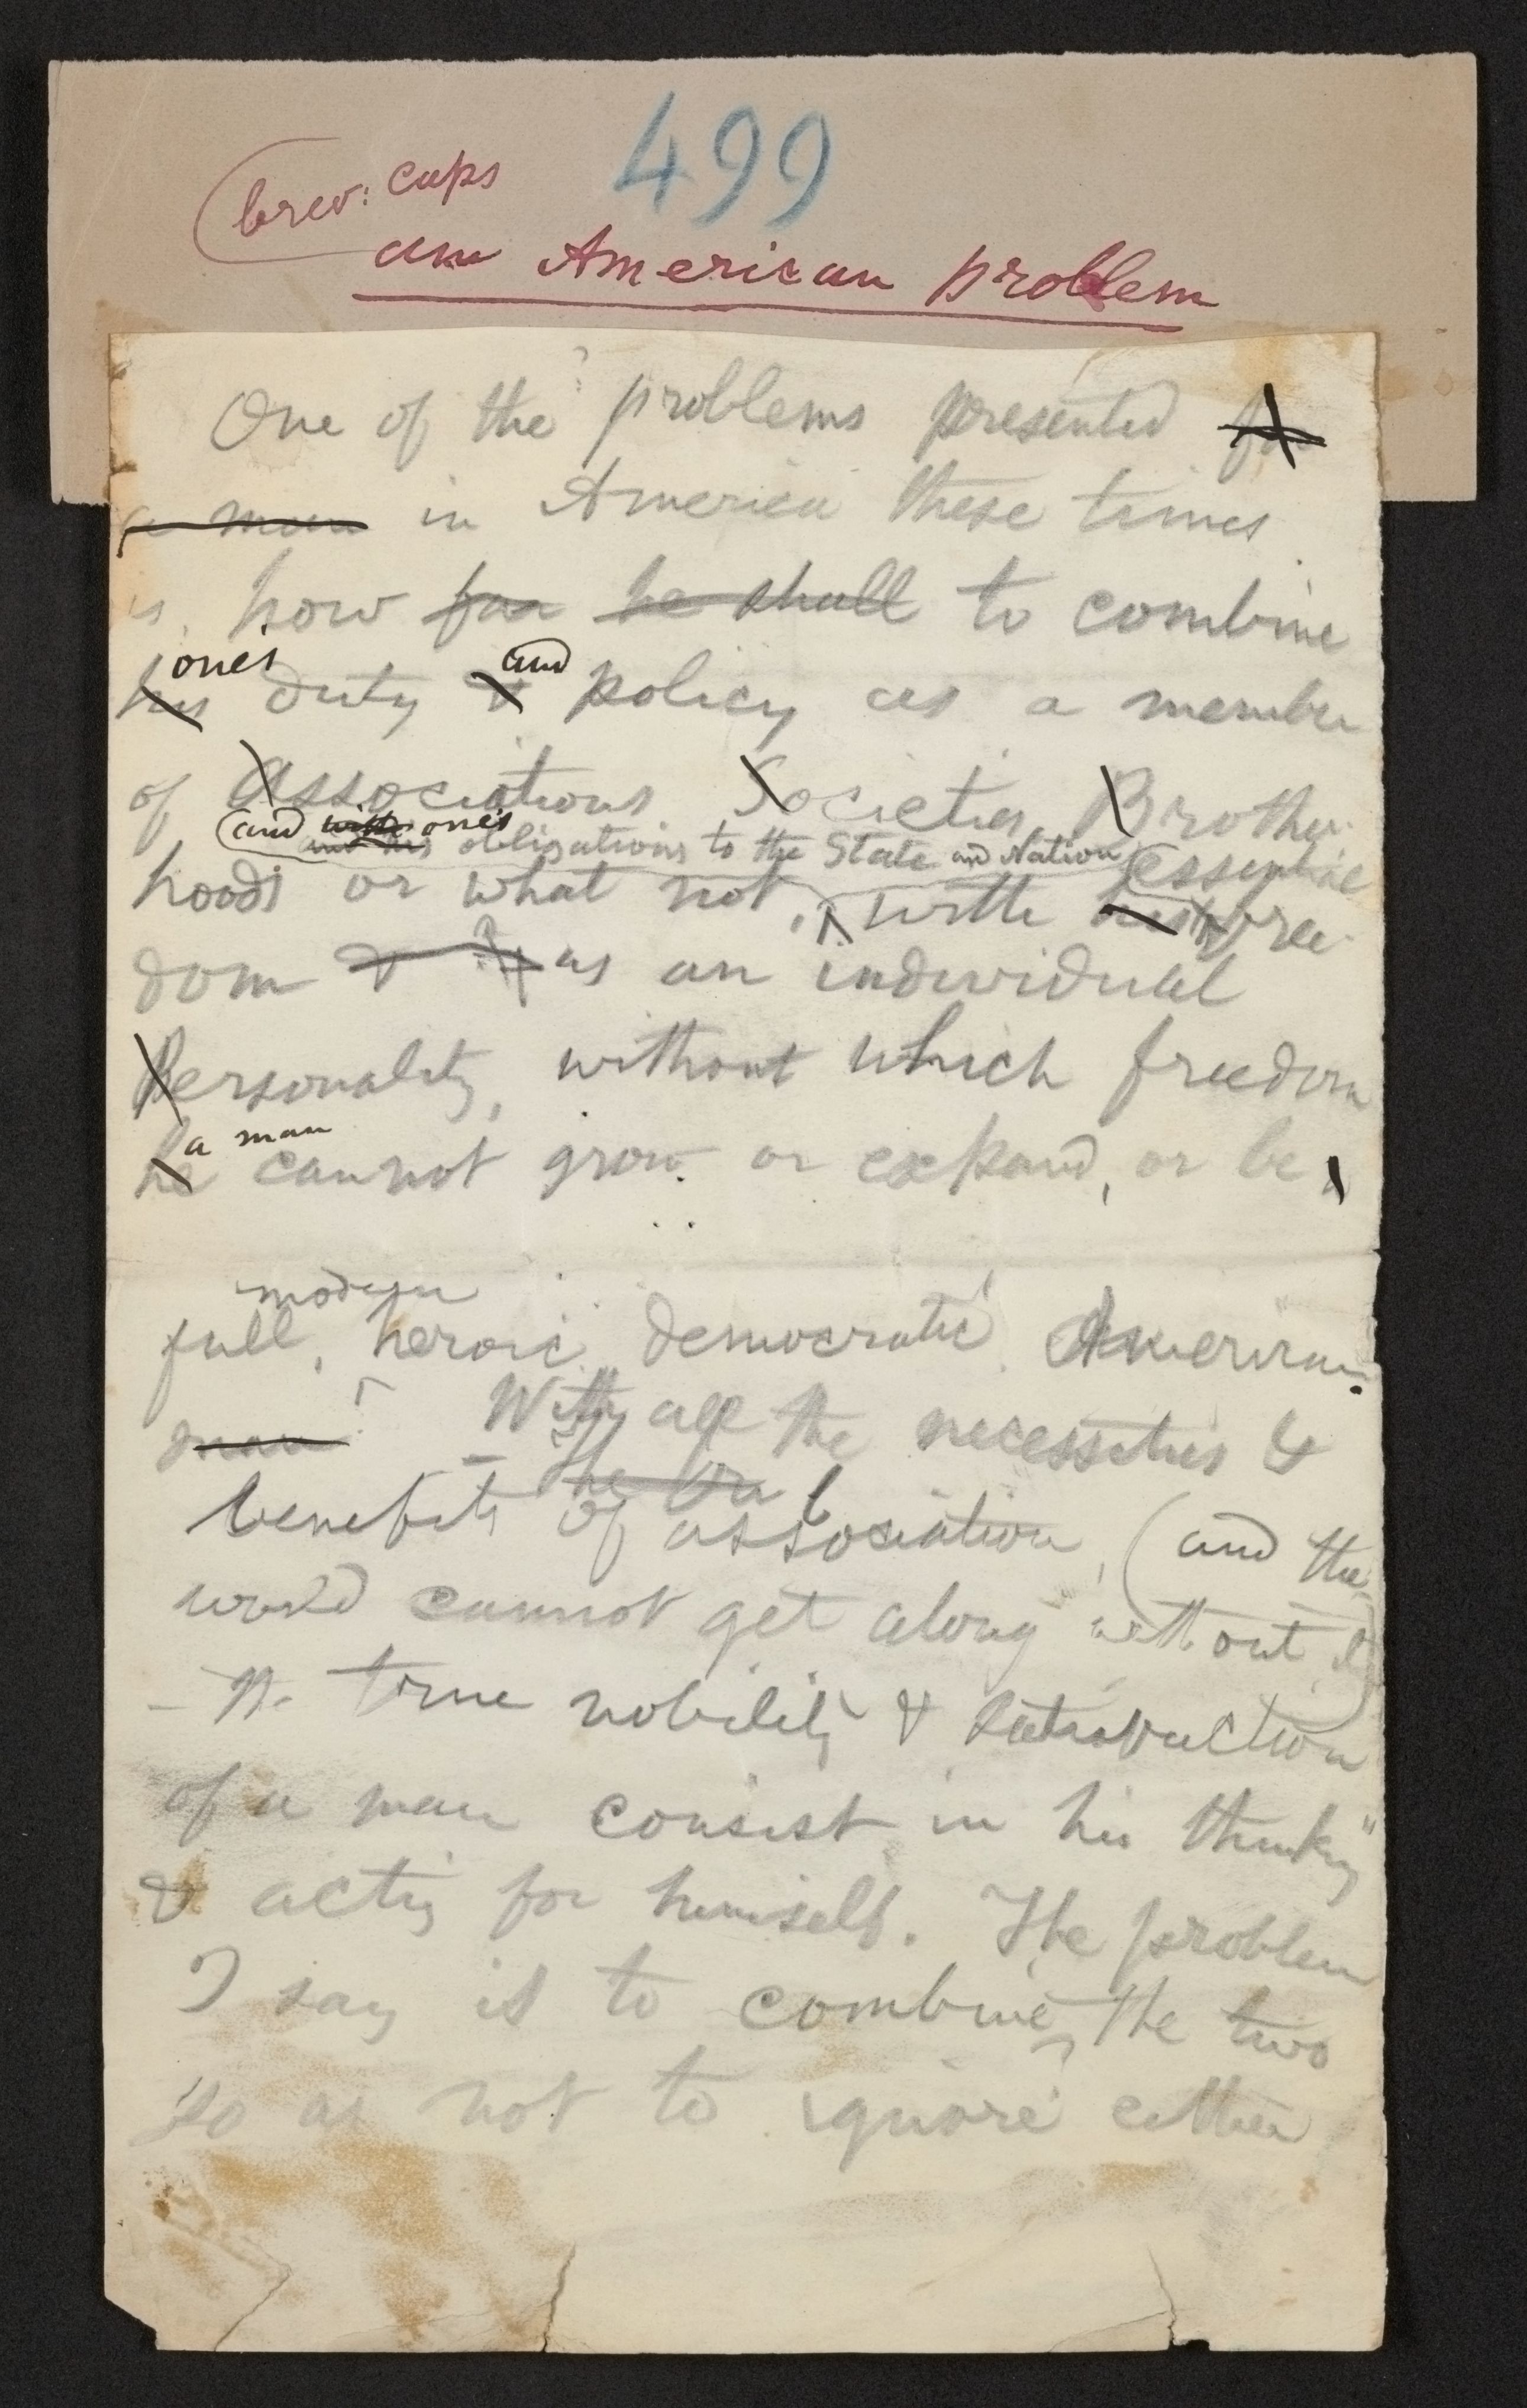 499
brev: caps
an American problem
One of the problems presented
a man in America these times
is, how far he shall to combine
his one's duty & and policy as a member
of Associations Societies, Brother-
and with one's
and his obligations to the State and Nation, essential
hoods or what not, with his free-
dom & as an individual
Personality, without which freedom
a man
he cannot grow or expand, or be
modern
full, heroic democratic American.
man With all the necessities &
The
benefits of association, (and the
world cannot get along without it)
– the true nobility & satisfaction
of a man consist in his thinking
& acting for himself. The problem
I say is to combine the two
so as not to ignore either